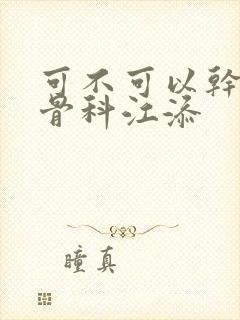 可不可以幹
骨科江添
瞳真